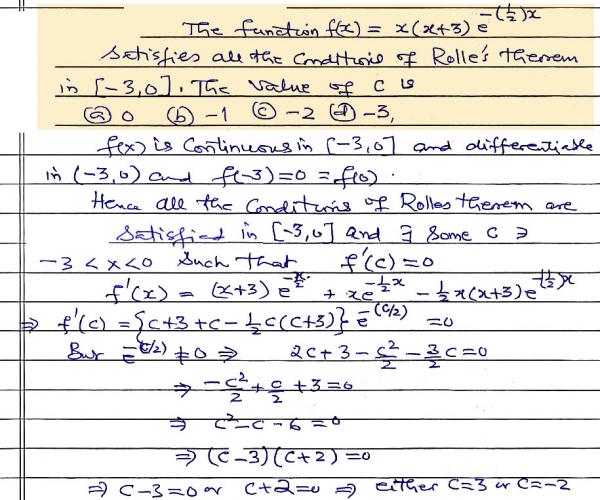 The function f(x) = x(x+3) e^-(1/2)x
Satisfies all the Conditions of Rolle's theorem
in [-3,0]. The value of C is
(a) 0 (b) -1 (c) -2 (d) -3,
f(x) is Continuous in [-3,0] and differentiable
in (-3,0) and f(-3)=0 = f(0).
Hence all the Conditions of Rolles theorem are
Satisfied in [-3,0] and ∃ Some C ∋
-3 < x < 0 Such that f'(c) = 0
f'(x) = (x+3) e^-x/2 + xe^-1/2x - 1/2x(x+3)e^-(1/2)x
⇒ f'(c) = {c+3+c-1/2c(c+3)} e^-(c/2) = 0
But e^-(c/2) ≠ 0 ⇒ 2c+3-c²/2-3/2c=0
⇒ -c²/2 + c/2 + 3 = 0
⇒ c²-c-6=0
⇒ (c-3)(c+2)=0
⇒ c-3=0 or c+2=0 ⇒ either c=3 or c=-2